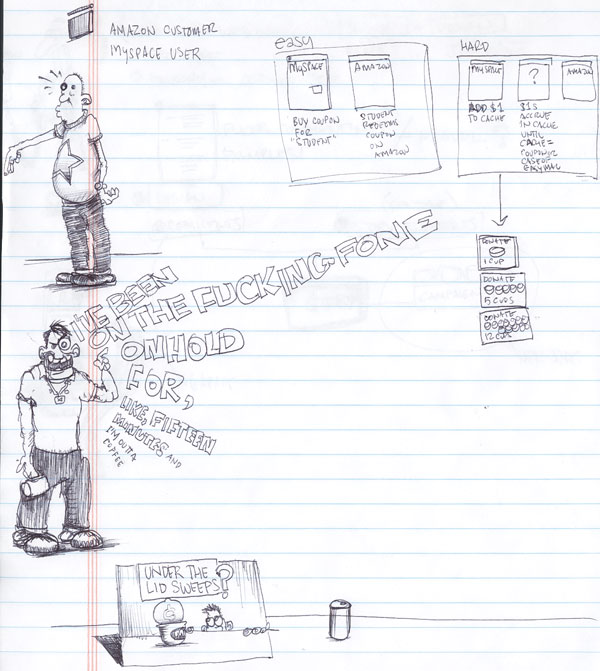 AMAZON CUSTOMER
MYSPACE USER
easy
MYSPACE
AMAZON
BUY COUPON
FOR
"STUDENT"
STUDENT
REDEEMS
COUPON
ON
AMAZON
HARD
MYSPACE
?
AMAZON
ADD $1
TO CACHE
$1S
ACCRUE
IN CACHE
UNTIL
CACHE=
COUPON OR
CASE OF
EASYMAC
DONATE
1 CUP
DONATE
5 CUPS
DONATE
12 CUPS
I'VE BEEN
ON THE FUCKING FONE
ON HOLD
FOR,
LIKE, FIFTEEN
MINUTES AND
I'M OUTTA
COFFEE
UNDER THE
LID SWEEPS?